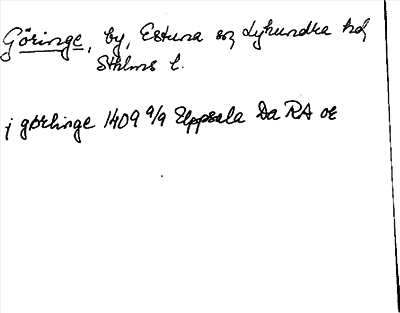 Göringe, by, Estuna sn, Lyhundra hd,
Sthlms l.
j gørlinge 1409 9/9 Uppsala Da RA or